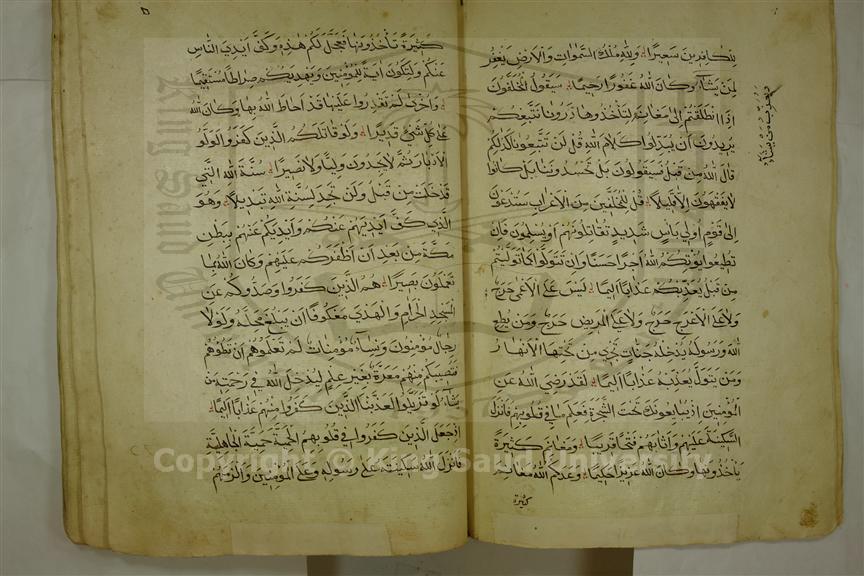 للكافرين سعيرا ولله ملك السموات والارض يغفر
لمن يشاء وكان الله غفورا رحيما سيقول المخلفون
اذا انطلقتم الى مغانم لتاخذوها ذرونا نتبعكم
يريدون ان يبدلوا كلام الله قل لن تتبعونا كذلكم
قال الله من قبل فسيقولون بل تحسدوننا بل كانوا
لا يفقهون الا قليلا قل للمخلفين من الاعراب ستدعون
الى قوم اولي باس شديد تقاتلونهم او يسلمون فان
تطيعوا يوتكم الله اجرا حسنا وان تتولوا كما توليتم
من قبل يعذبكم عذابا اليما ليس على الاعمى حرج
ولا على الاعرج حرج ولا على المريض حرج ومن يطع
الله ورسوله يدخله جنات تجري من تحتها الانهار
ومن يتول يعذبه عذابا اليما لقد رضي الله عن
المؤمنين اذ يبايعونك تحت الشجرة فعلم ما في قلوبهم فانزل
السكينة عليهم واثابهم فتحا قريبا ومغانم كثيرة
ياخذونها وكان الله عزيزا حكيما وعدكم الله مغانم
كثيرة
ويعذب من يشاء
كثيرة تاخذونها فعجل لكم هذه وكف ايدي الناس
عنكم ولتكون اية للمؤمنين ويهديكم صراطا مستقيما
واخرى لم تقدروا عليها قد احاط الله بها وكان الله
على كل شيء قديرا ولو قاتلكم الذين كفروا لولوا
الادبار ثم لا يجدون وليا ولا نصيرا سنة الله التي
قد خلت من قبل ولن تجد لسنة الله تبديلا وهو
الذي كف ايديهم عنكم وايديكم عنهم ببطن
مكة من بعد ان اظفركم عليهم وكان الله بما
تعملون بصيرا هم الذين كفروا وصدوكم عن
المسجد الحرام والهدي معكوفا ان يبلغ محله ولولا
رجال مؤمنون ونساء مؤمنات لم تعلموهم ان تطوهم
فتصيبكم منهم معرة بغير علم ليدخل الله في رحمته من
يشاء لو تزيلوا لعذبنا الذين كفروا منهم عذابا اليما
اذ جعل الذين كفروا في قلوبهم الحمية حمية الجاهلية
فانزل الله سكينته على رسوله وعلى المؤمنين والزمهم
Copyright © King Saud University